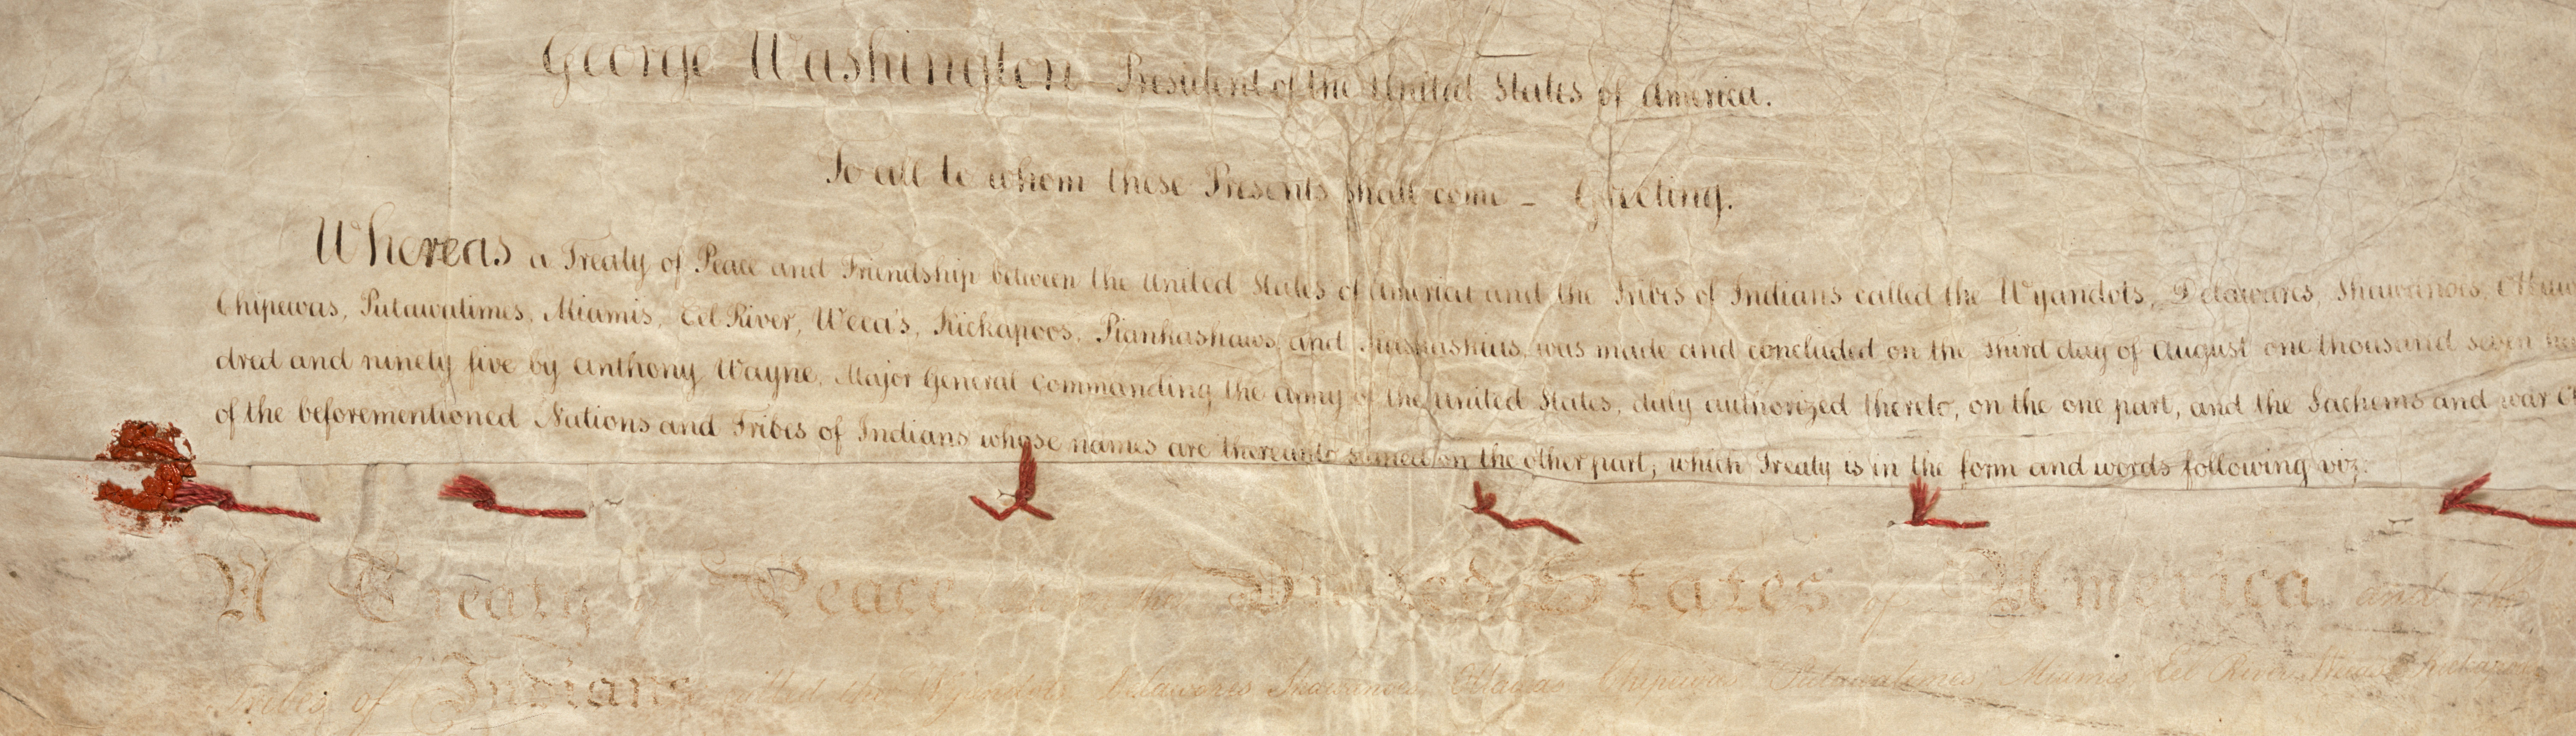 George Washington President of the United States of America.
To all to whom these Presents shall come - Greeting.
Whereas a Treaty of Peace and Friendship between the United States of America and the Tribes of Indians called the Wyandots, Delawares, Shawanoes, Ottaw
Chipewas, Putawatimes, Miamis, Eel River, Weea's, Kickapoos, Piankashaws, and Kaskaskias, was made and concluded on the third day of August one thousand seven hun
dred and ninety five by Anthony Wayne, Major General Commanding the army of the United States, duly authorized thereto, on the one part, and the Sachems and war Ch
of the beforementioned Nations and Tribes of Indians whose names are thereunto signed on the other part; which Treaty is in the form and words following viz:
A Treaty of Peace between the United States of America and the
Tribes of Indians called the Wyandots Delawares Shawanoes Ottawas Chipewas Putawatimes Miamis, Eel River, Weeas Kickapoos